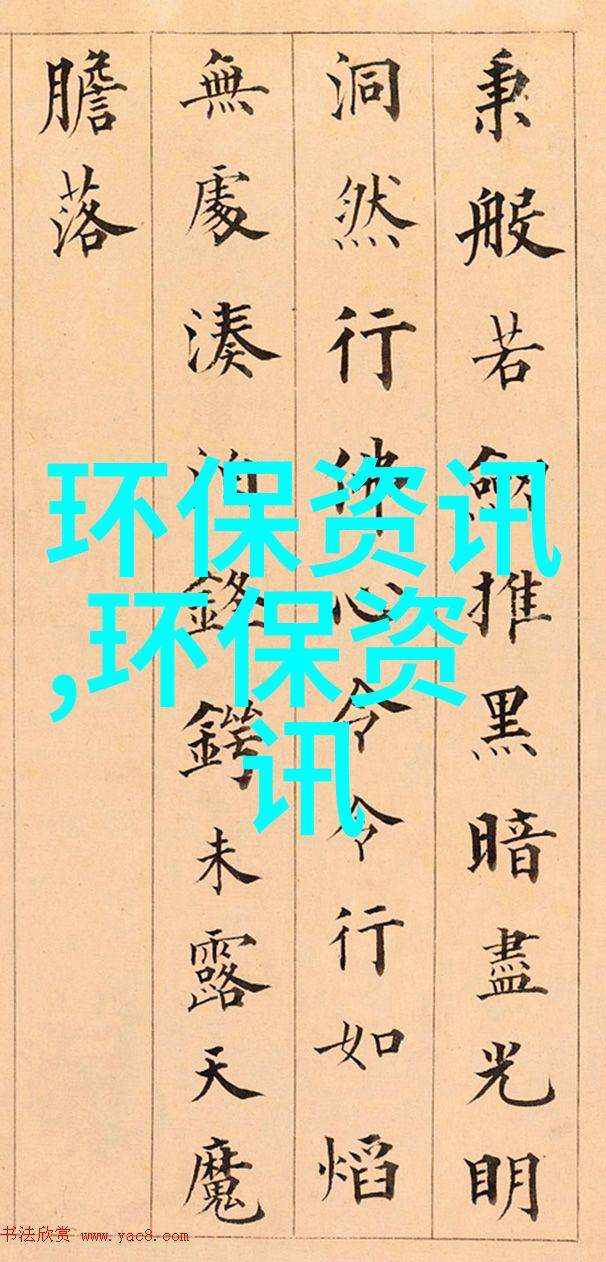 秉般若劒推黑暗盡光明
洞然行佛心令令行如熖
無處湊泊鋒鍔未露天魔
膽落
环保资讯
,环保资
讯
书法欣赏 www.yac8.com